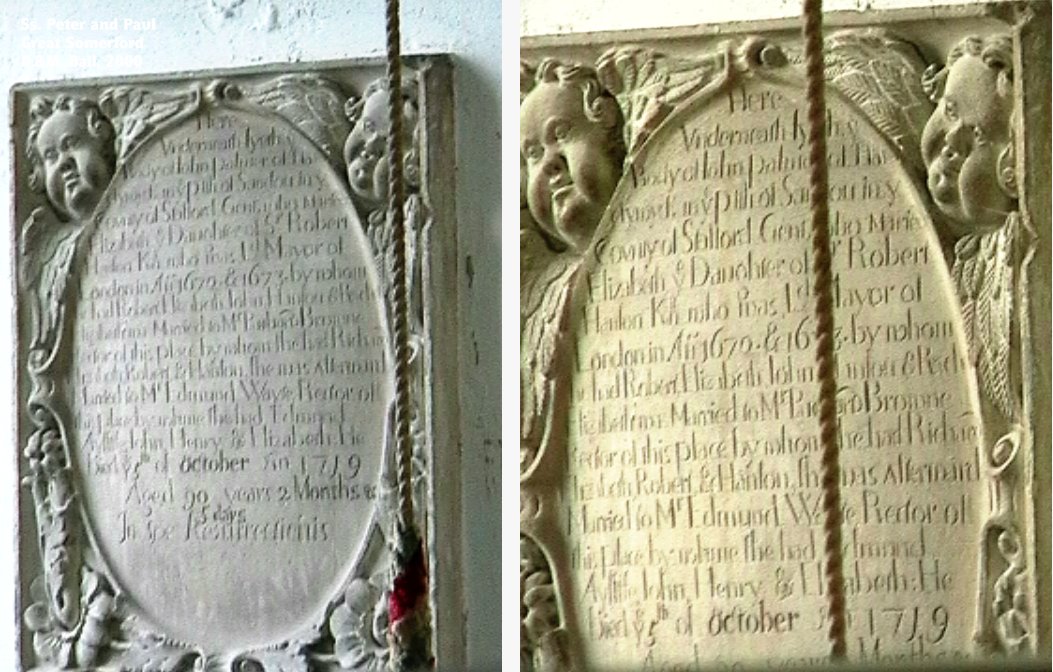 SS. Peter and Paul
Great Somerford
Here
Underneath lyeth y
Body of John palmer of
in y p'ish of Sandon in y
County of Stafford Gent, who
Elizabeth y Daughter of Sr Robert
Hanson Kt. who was Ld Mayor of
London in An 1672. & 1673. by whom
he had Robert Elizabeth John Hanson &
Elizabeth was Married to Mr Browne
Rector of this place by whom she had Richard
Elizabeth Robert & Hanson. She was afterward
Married to Mr Edmund Wayte Rector of
this place by whome she had Edmund
Ayliffe John Henry & Elizabeth: He
Died ye 5th of october An 1719
Aged 90 years 2 Months &
5 days
In spe Resurrectionis
Here
Underneath lyeth y
Body of John palmer of
in y p'ish of Sandon in y
County of Stafford Gent, who
Elizabeth y Daughter of Robert
Hanson Kt. who was Ld Mayor of
London in An 1670. & by whom
he had Robert Elizabeth John &
Elizabeth was Married to Mr Browne
Rector of this place by whom she had Richard
Elizabeth Robert & Hanson. was afterward
Married to Mr Edmund Rector of
this place by whome she had Edmund
Ayliffe John Henry & Elizabeth: He
Died ye 5th of october 1719
90 years Months